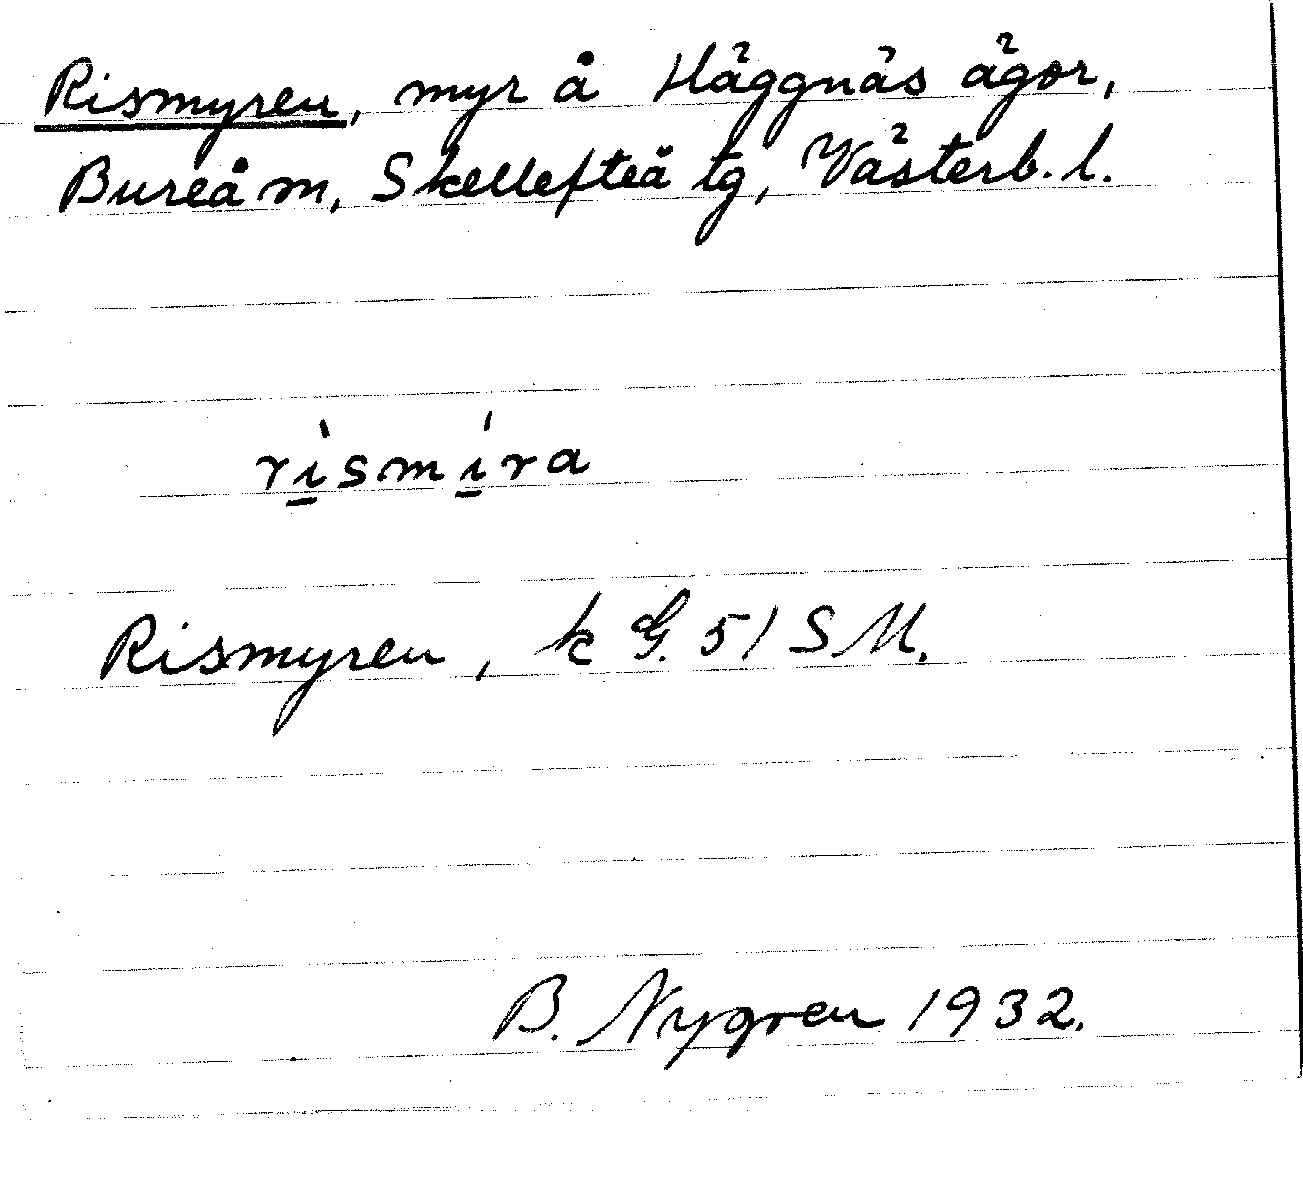 Rismyren, myr å Häggnäs ägor,
Bureå m, Skellefteå tg, Västerb. l.
rı̱̀smı̱́ra
Rismyren, k G. 51 S M.
B. Nygren 1932.